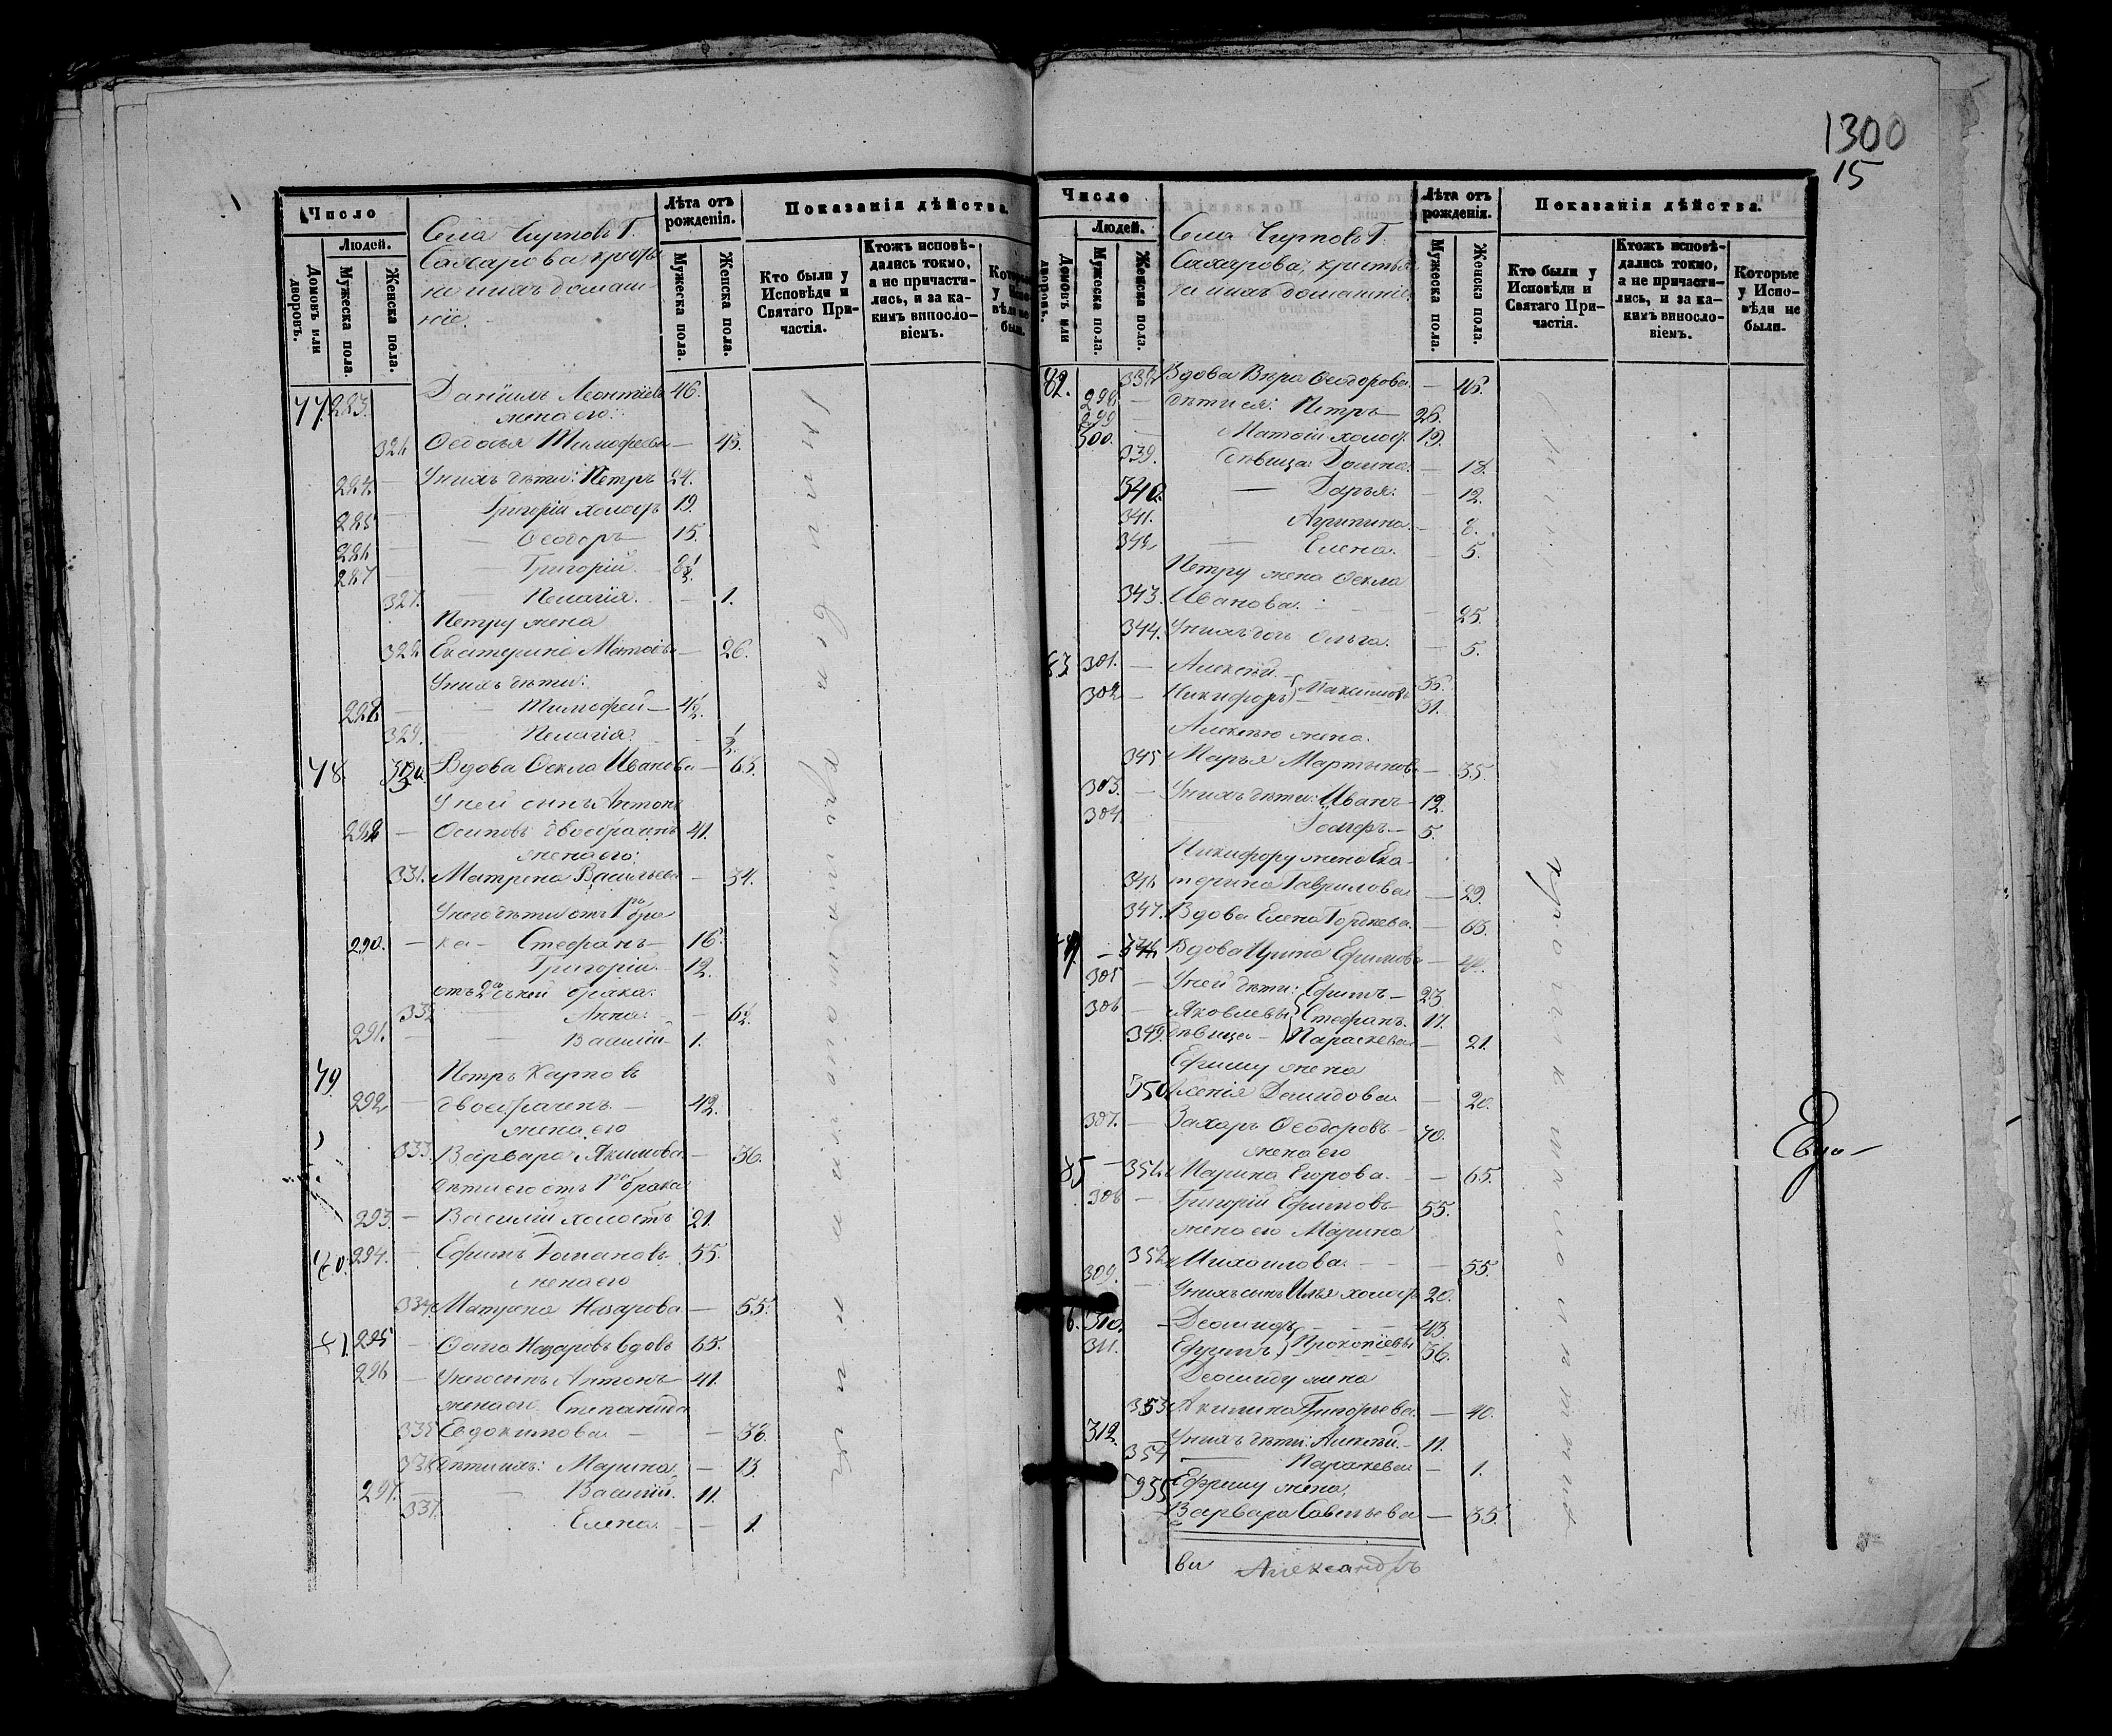 1300
15
Число
Людей.
Домовъ или дворовъ.
Мужеска пола.
Женска пола.
Села Г.
Сахарова крестья
не и ихъ домаш-
ніе.
Лѣта отъ рожденія.
Мужеска пола.
Женска пола.
Показанія дѣйства.
Кто были у Исповѣди и Святаго Причастія.
Ктожъ исповѣдались токмо, а не причастились, и за какимъ винословіемъ.
77. 283. Даніилъ Леонтіевъ 46.
жена его:
326 Ѳеодосья Тимофеева — 45.
284. — У нихъ дѣти: Петръ 24.
285 — Григорій холостъ 19.
286 — Ѳеодоръ — 15.
287 — Григорій.
327. — Пелагія. — 1.
Петру жена
328 Екатерина Матѳіева — 26.
У нихъ дѣти:
288 — Тимофей — 4½.
329. — Пелагія. — ½.
78. 330. Вдова Ѳекла Иванова — 65.
У ней сынъ Антонъ
289 — Осиповъ двоебрачнъ 41.
жена его:
331. Матрена Васильева — 34.
У него дѣти отъ 1го бра
290. — ка — Стефанъ — 16.
Григорій. 12.
отъ 2го съ ней брака:
332 — Анна: — 6½.
291. — Василій — 1.
79. Петръ Карповъ
292 — двоебрачнъ. — 42.
жена его
333. Варвара Якимова. — 36.
дѣти его отъ 1го брака
293. — Василій холостъ 21.
80. 294. — Ефимъ Романовъ 55.
жена его
334. Матрона Назарова — 55.
81. 295 — Ѳома Назаровъ вдовъ 65.
296 — У него сынъ Антонъ 41.
жена его Степанида
335 Евдокимова — 36.
336 дѣти ихъ: Марина — 13
297. — Василій. 11.
337. Елена — 1.
Число
Людей.
Домовъ или дворовъ.
Мужеска пола.
Женска пола.
Села Г.
Сахарова, крестья
не и ихъ домашніе
Лѣта отъ рожденія.
Мужеска пола.
Женска пола.
Показанія дѣйства.
Кто были у Исповѣди и Святаго Причастія.
Ктожъ исповѣдались токмо, а не причастились, и за какимъ винословіемъ.
Которые у Исповѣди не были.
82. 338 Вдова Вѣра Ѳеодорова — 46.
298. — дѣти ея: Петръ 26.
299
300. — Матѳій холост. 19.
339. дѣвица: Домна. — 18.
340. — Дарья: — 12.
341. Агрипина. — 8.
342 — Елена. — 5.
Петру жена Ѳекла
343. Иванова. — 25.
344. У нихъ дочь Ольга. — 5.
83 301. — Алексѣй — 36.
302 — Никифоръ } Максимовы 31.
Алексѣю жена.
345 Марья Мартынова — 35.
303. — У нихъ дѣти: Иванъ — 12.
304. Іосифъ. — 5.
Никифору жена Ека-
346 терина Гаврилова — 29.
347. Вдова Елена Гордѣева. — 63.
348 Вдова Ирина Ефимова — 44.
305 — У ней дѣти: Ефимъ — 23
306 — Яковлевы } Стефанъ. 17.
349. дѣвица — Параскева — 21.
Ефиму жена
350 Ксенія Демидова — 20.
307. — Захаръ Ѳеодоровъ — 70.
жена его
85 — 351. Марина Егорова. — 65.
308 — Григорій Ефимовъ — 55.
жена его Марина
352 Михайлова. — 55.
309. — У нихъ сынъ Илья холост 20.
310. — Деомидъ — 43.
311. Ефимъ } Прокопіевы 36.
Деомиду жена
353 Акилина Григорьева. — 40.
312. — У нихъ дѣти: Алексѣй. 11.
354 — Параскева — 1.
355 Ефиму жена,
Варвара Савельева — 35.
Александръ